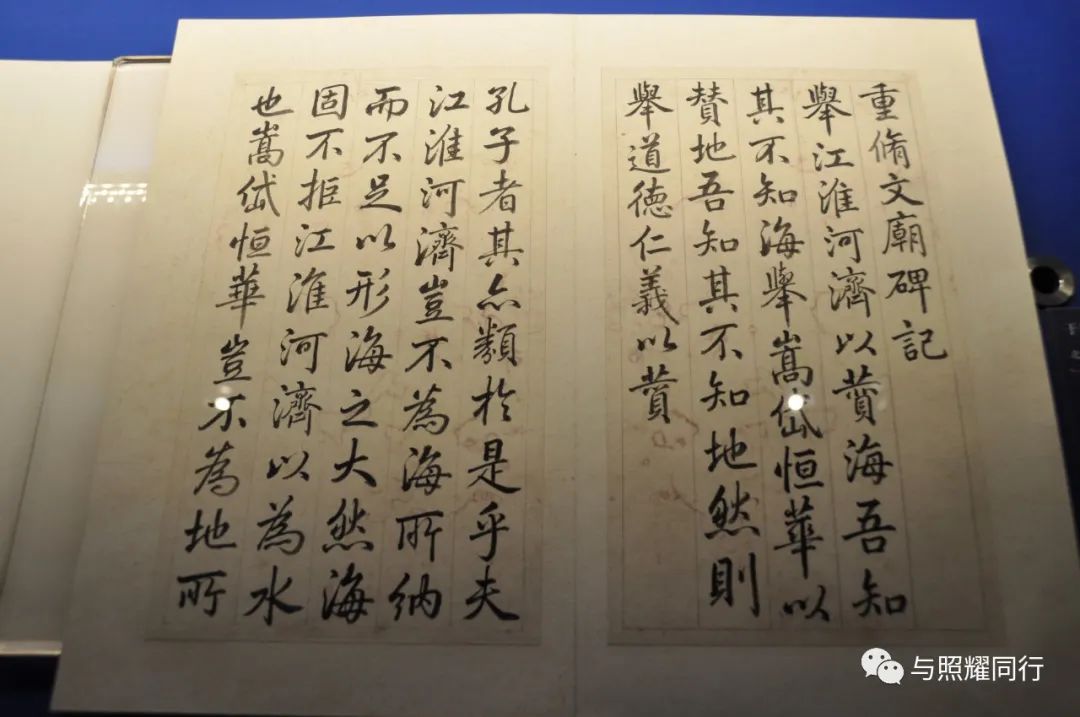 重脩文廟碑記
舉江淮河濟以賛海吾知
其不知海舉嵩岱恒華以
賛地吾知其不知地然則
舉道德仁義以賛
孔子者其亦類於是乎夫
江淮河濟豈不為海所納
而不足以形海之大然海
固不拒江淮河濟以為水
也嵩岱恒華豈不為地所
与照耀同行